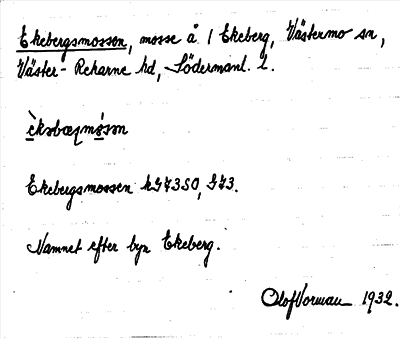 Ekebergsmossen, mosse å 1 Ekeberg, Västermo sn,
Väster-Rekarne hd, Södermanl. l.
Ekebergsmossen
Namnet efter byn Ekeberg.
Olof Vorman 1932.